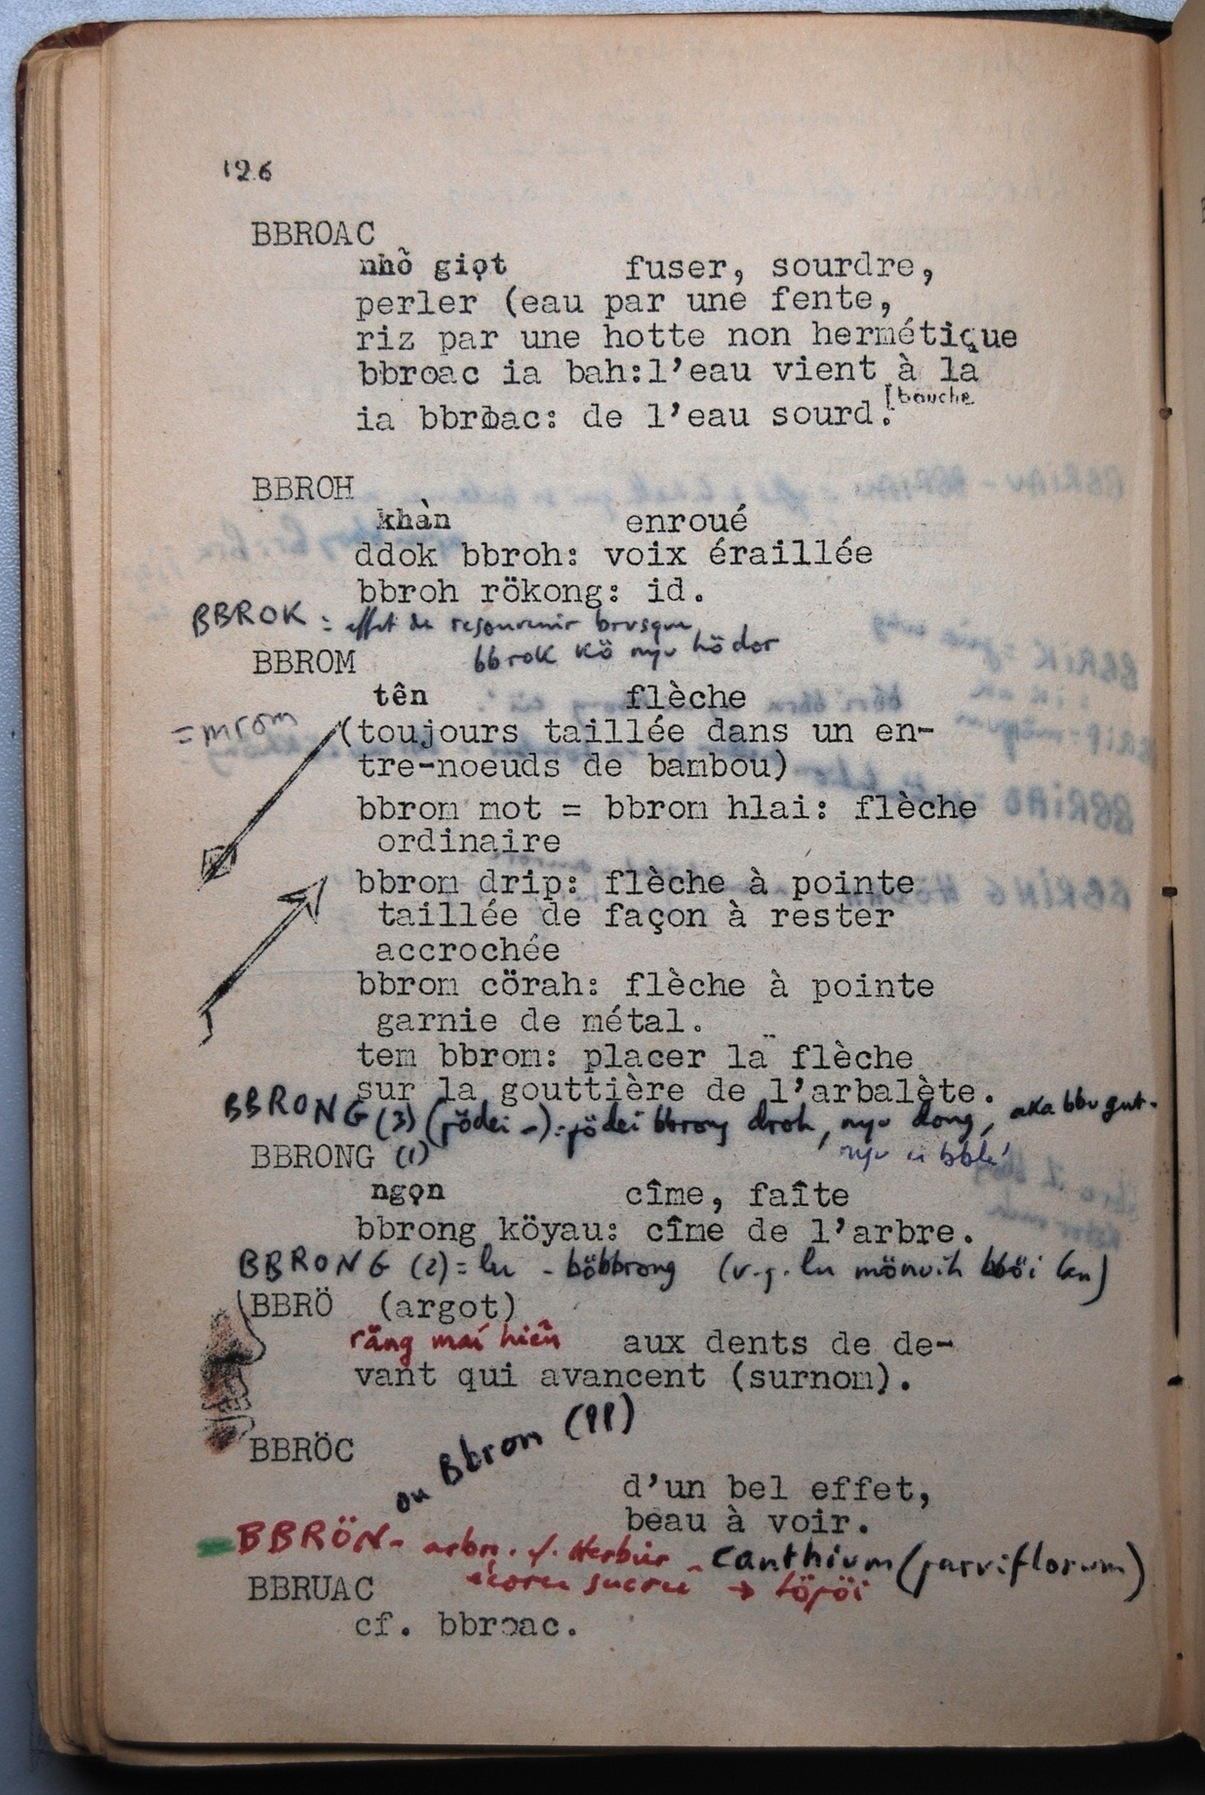 126
BBROAC
nhỏ giọt fuser, sourdre,
perler (eau par une fente,
riz par une hotte non hermétique
bbroac ia bah:l'eau vient à la
[bouche
ia bbroac: de l'eau sourd.
BBROH
khàn enroué
ddok bbroh: voix éraillée
bbroh rökong: id.
BBROK = effet de resouvenir brusque
bbrok kö nyu hödor
BBROM
tên flèche
= mrom
(toujours taillée dans un en-
tre-noeuds de bambou)
bbrom mot = bbrom hlai: flèche
ordinaire
bbrom drip: flèche à pointe
taillée de façon à rester
accrochée
bbrom cörah: flèche à pointe
garnie de métal.
tem bbrom: placer la flèche
sur la gouttière de l'arbalète.
BBRONG (3) (pödei -): pödei bbrong droh, nyu dong, aka bbu gut.
BBRONG (1) nyu
ngọn cîme, faîte
bbrong köyau: cîme de l'arbre.
BBRONG (2) = lu - böbbrong (v.g. lu mönuih bböi lan)
BBRÖ (argot)
răng mái hiên aux dents de de-
vant qui avancent (surnom).
BBRÖC
ou Bbrom (PP)
d'un bel effet,
beau à voir.
BBRÖN - canthium (parviflorum)
écorce sucrée → töpöi
BBRUAC
cf. bbroac.